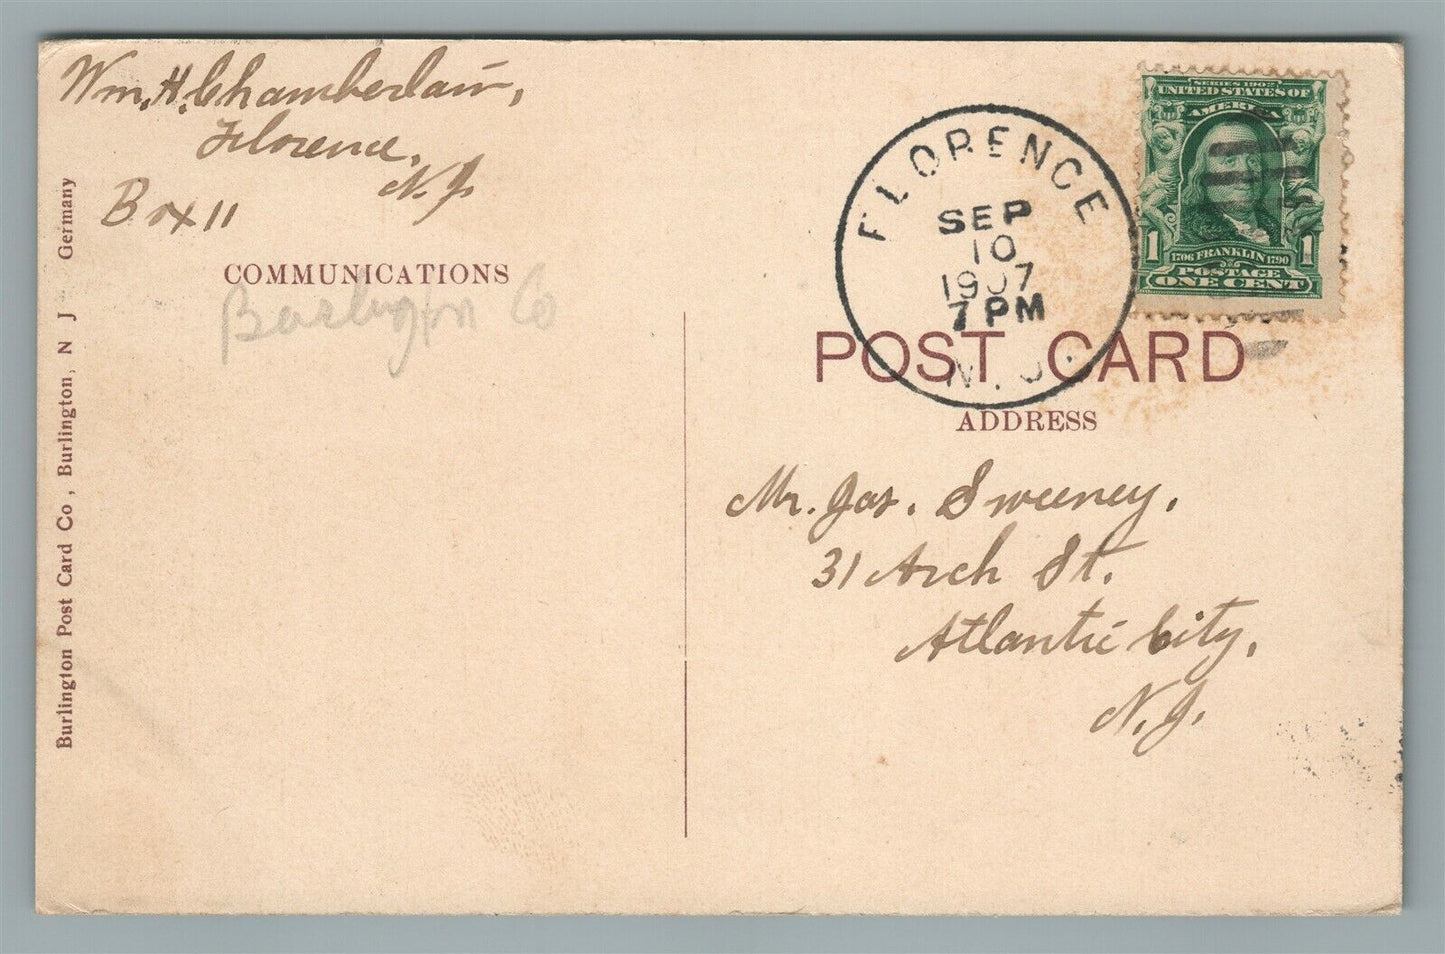 Wm. H. Chamberlain,
Florence,
N. J.
Box 11
COMMUNICATIONS
Burlington Co
Burlington Post Card Co., Burlington, N J Germany
FLORENCE
SEP
10
1907
7 PM
N. J.
SERIES 1902
UNITED STATES OF
AMERICA
1 1
1706 FRANKLIN 1790
POSTAGE
ONE CENT
POST CARD
ADDRESS
Mr. Jas. Sweeney.
31 Arch St.
Atlantic City,
N. J.